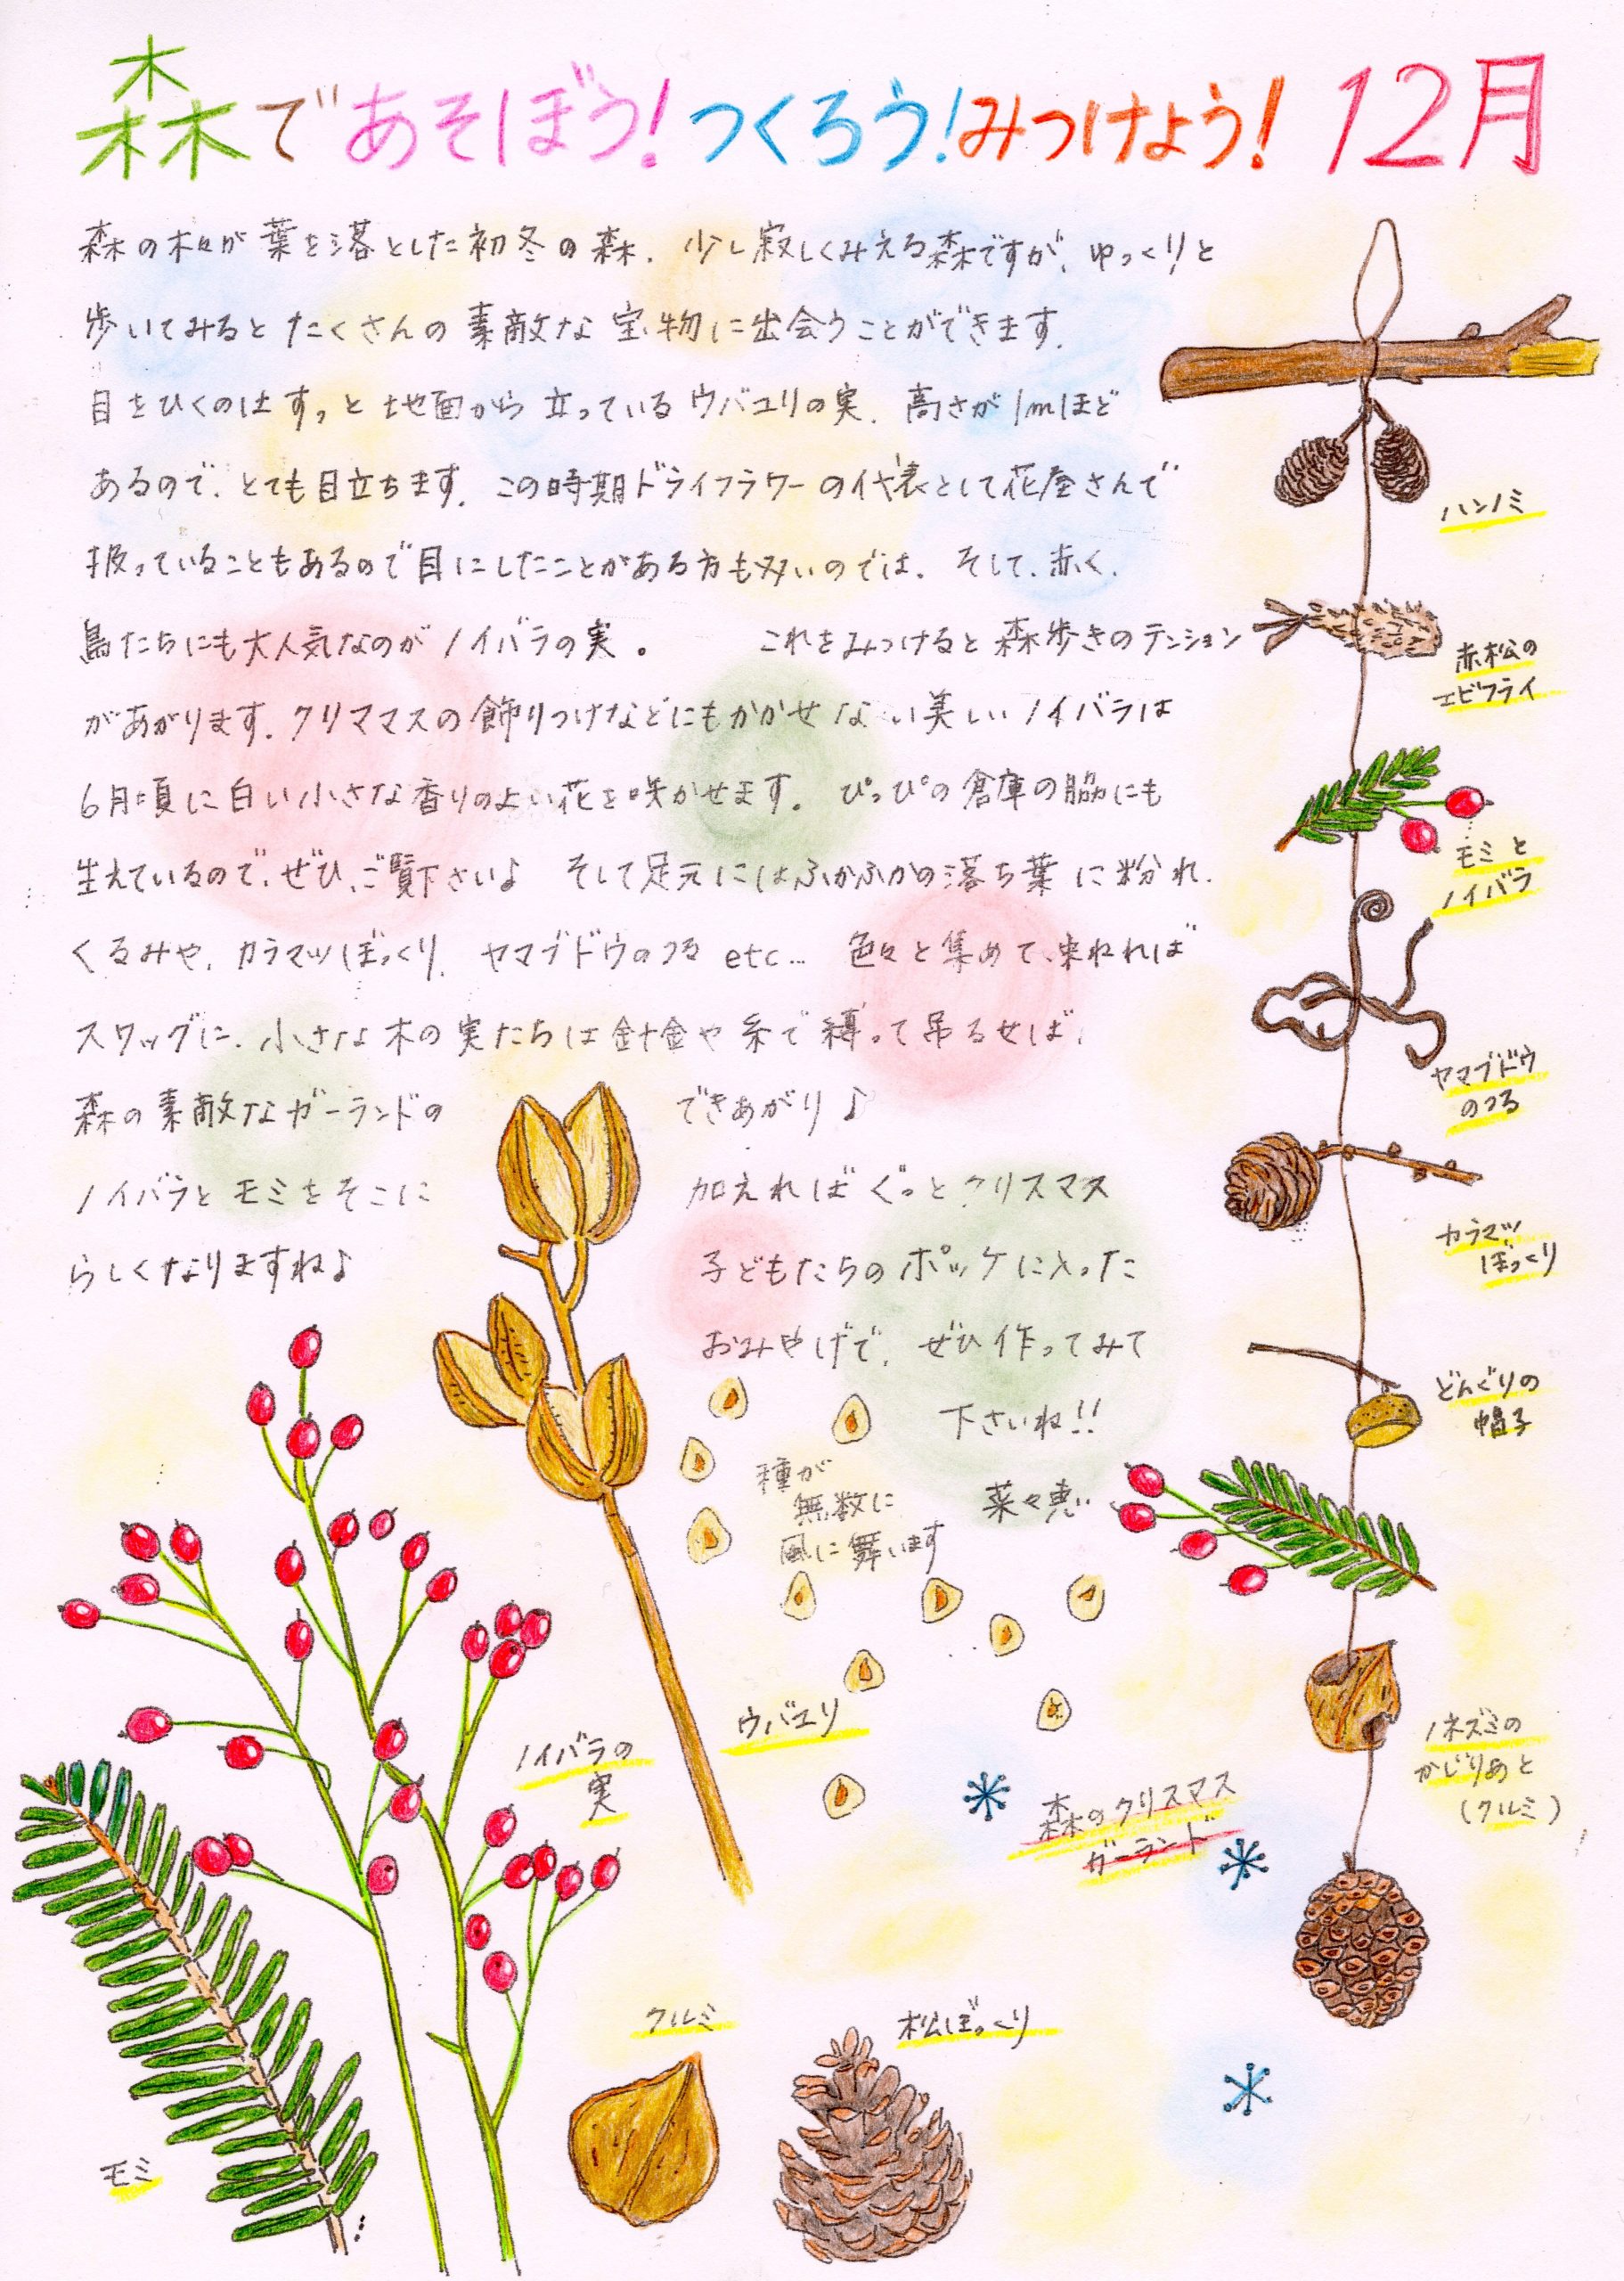 森であそぼう!つくろう!みつけよう! 12月
森の木々が葉を落とした初冬の森. 少し寂しくみえる森ですが、ゆっくりと
歩いてみるとたくさんの素敵な宝物に出会うことができます.
目をひくのはすっと地面から立っているウバユリの実. 高さが1mほど
あるので、とても目立ちます. この時期ドライフラワーの代表として花屋さんで
扱っていることもあるので目にしたことがある方も多いのでは. そして、赤く、
鳥たちにも大人気なのがノイバラの実。 これをみつけると森歩きのテンション
があがります. クリママスの飾りつけなどにもかかせない美しいノイバラは
6月頃に白い小さな香りのよい花を咲かせます. ぴっぴの倉庫の脇にも
生えているので、ぜひ、ご覧下さい♪ そして足元にはふかふかの落ち葉に粉れ.
くるみや、カラマツぼっくり、ヤマブドウのつる etc... 色々と集めて、束ねれば
スワッグに、小さな木の実たちは針金や糸で縛って吊るせば、
森の素敵なガーランドの できあがり♪
ノイバラとモミをそこに 加えればぐっとクリスマス
らしくなりますね♪ 子どもたちのポッケに入った
おみやげで、ぜひ作ってみて
下さいね!!
菜々恵
種が
無数に
風に舞います
ハンノミ
赤松の
エビフライ
モミと
ノイバラ
ヤマブドウ
のつる
カラマツ
ぼっくり
どんぐりの
帽子
ノネズミの
かじりあと
(クルミ)
ウバユリ
ノイバラの
実
森のクリスマス
ガーランド
クルミ
松ぼっくり
モミ